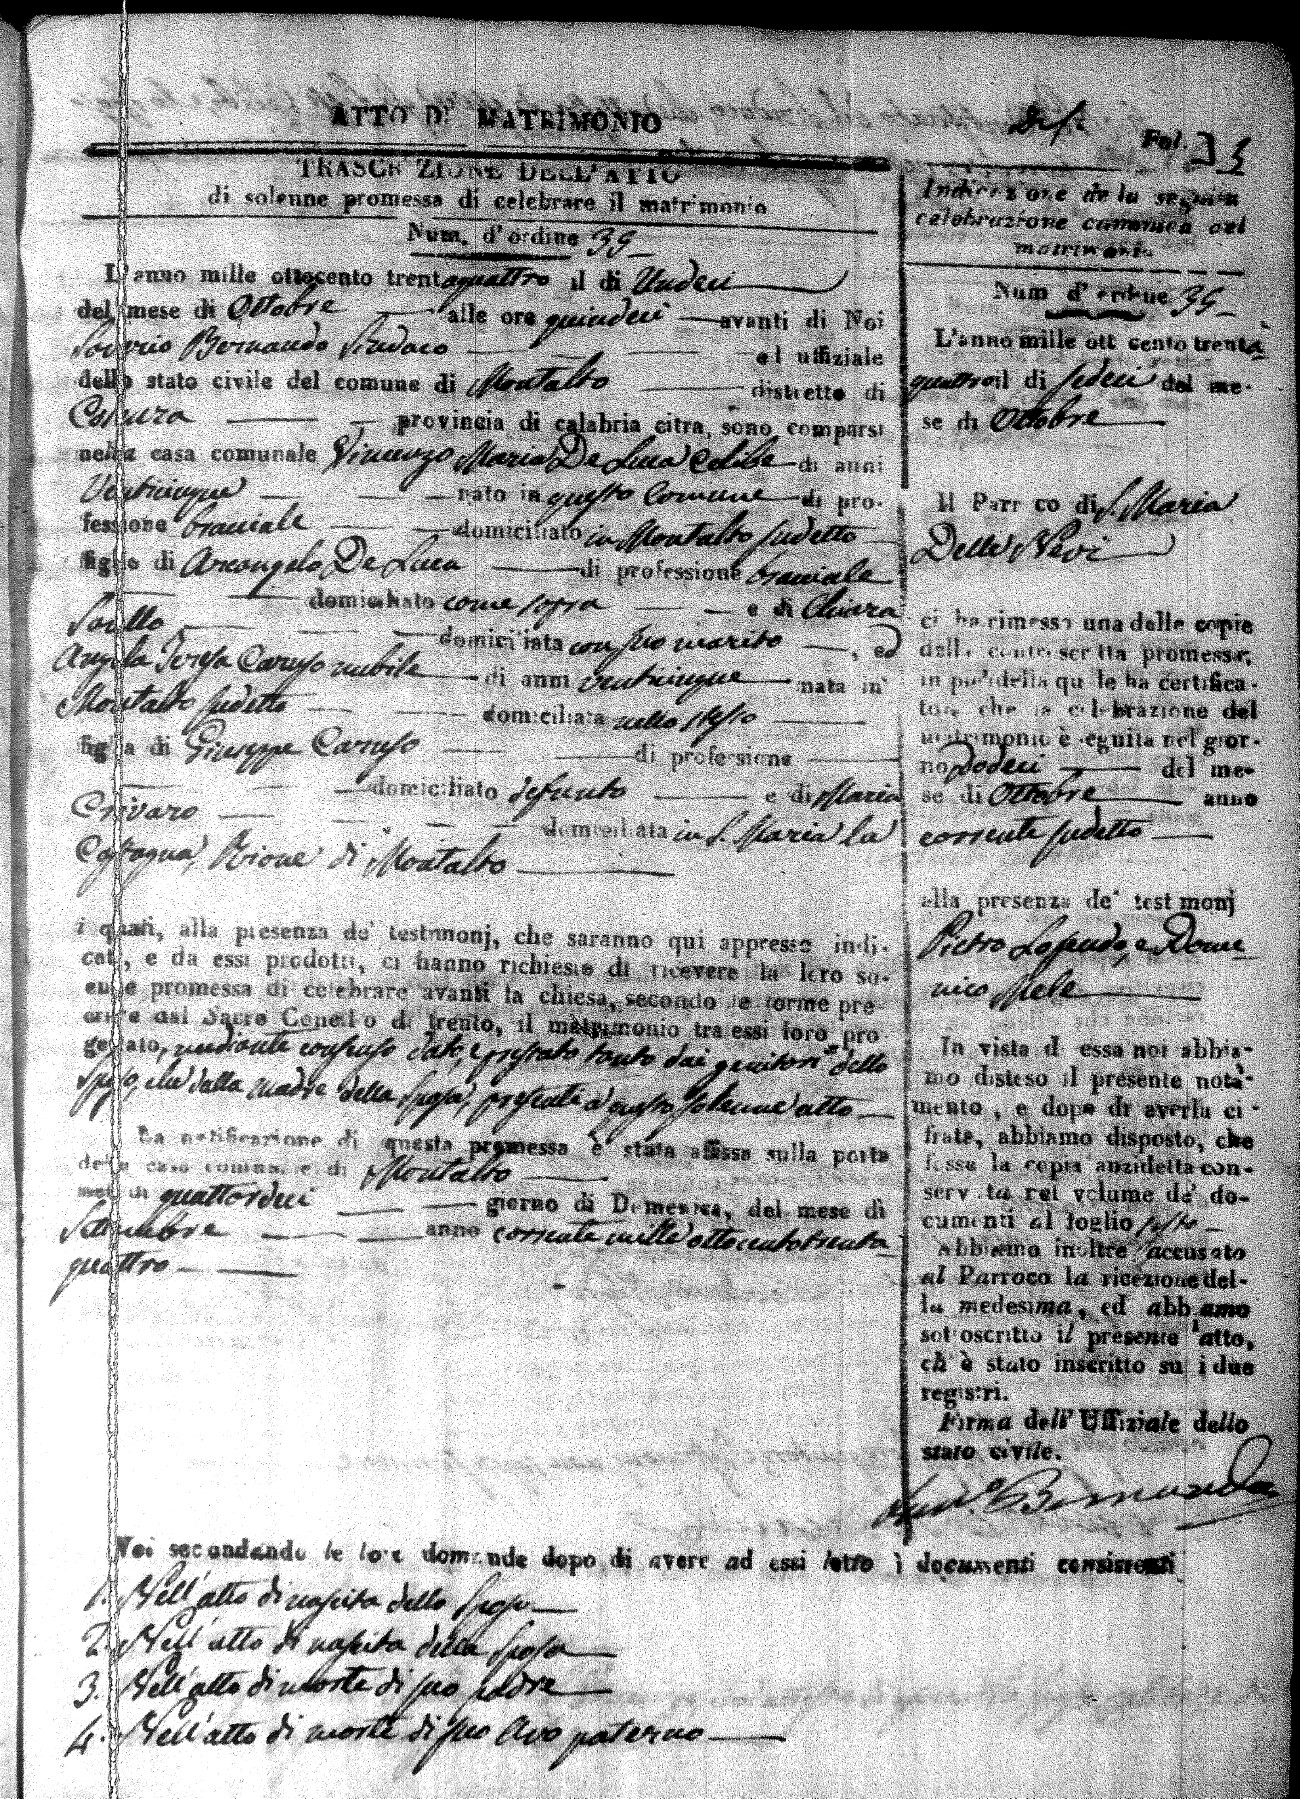 ATTO DI MATRIMONIO
Fol. 35
TRASCRIZIONE DELL'ATTO
di solenne promessa di celebrare il matrimonio
Num. d'ordine 39
L'anno mille ottocento trentaquattro il di Undeci
del mese di Ottobre alle ore quindeci avanti di Noi
Bernardo Sindaco ed uffiziale
dello stato civile del comune di Montalto distretto di
Cosenza provincia di calabria citra, sono comparsi
nella casa comunale Vincenzo Maria De Luca Celibe di anni
Venticinque nato in questo Comune di pro-
fessione braciale domiciliato in Montalto sudetto
figlio di Arcangelo De Luca di professione braciale
domiciliato come sopra e di Chiara
domiciliata con suo marito, ed
Angela Teresa Caruso nubile di anni venticinque nata in
Montalto sudetto domiciliata nello stesso
figlia di Giuseppe Caruso di professione
domiciliato defunto e di Maria
Crivaro domiciliata in S. Maria la
Castagna, Rione di Montalto
i quali, alla presenza de' testimonj, che saranno qui appresso indi-
cati, e da essi prodotti, ci hanno richiesto di ricevere la loro so-
enne promessa di celebrare avanti la chiesa, secondo le forme pre
critte dal Sacro Concilio di Trento, il matrimonio tra essi loro pro
gettato, mediante consenso dato, e prestato tanto dai genitori dello
Sposo, che dalla madre della Sposa, presenti a questo solenne atto
La notificazione di questa promessa è stata affissa sulla porta
della casa comunale di Montalto
nel di quattordeci giorno di Domenica, del mese di
Settembre anno corrente mille ottocentotrenta
quattro
Indicazione della seguita
celebrazione canonica del
matrimonio
Num d'ordine 39
L'anno mille ott cento trenta
quattro il di sedeci del me-
se di Ottobre
Il Parroco di S. Maria
Delle Nevi
ci ha rimessa una delle copie
della controscritta promessa;
in piè della quale ha certifica-
to, che la celebrazione del
matrimonio è seguita nel gior-
no Dodeci del me-
se di Ottobre anno
corrente sudetto
alla presenza de' testimonj
Pietro e Dome
nico Mele
In vista di essa noi abbia-
mo disteso il presente nota-
mento, e dopo di averla ci-
frata, abbiamo disposto, che
fosse la copia anzidetta con-
servata nel volume de' do-
cumenti al foglio
Abbiamo inoltre accusato
al Parroco la ricezione del-
la medesima, ed abbiamo
sottoscritto il presente atto,
ch'è stato inscritto su i due
registri.
Firma dell'Uffiziale dello
stato civile.
Bernardo
Noi secondando le loro domande dopo di avere ad essi letto i documenti consistenti
1. Nell'atto di nascita dello Sposo
2. Nell'atto di nascita della Sposa
3. Nell'atto di morte di suo padre
4. Nell'atto di morte di suo Avo paterno